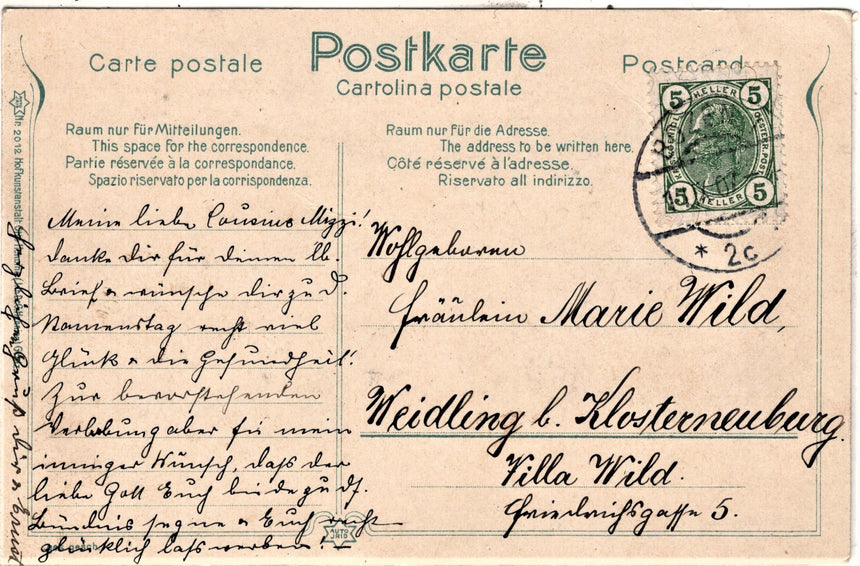 Carte postale
Postkarte
Postcard
Cartolina postale
Raum nur für Mitteilungen.
This space for the correspondence.
Partie réservée à la correspondance.
Spazio riservato per la corrispondenza.
Raum nur für die Adresse.
The address to be written here.
Côté réservé à l'adresse.
Riservato all indirizzo.
5 HELLER 5
5 HELLER 5
* 2c
Nr. 2012 Hofkunstanstalt
Meine liebe Cousine Mizzi!
danke Dir für Deinen lb.
Brief & wünsche Dir zu d.
Namenstag recht viel
Glück & die Gesundheit!
Zur bevorstehenden
Verlobung aber für mein
inniger Wunsch, dass der
liebe Gott Euch beide zu
Bündnis segne & Euch recht
glücklich lass werden! –
Wohlgeboren
Fräulein Marie Wild,
Weidling b. Klosterneuburg.
Villa Wild.
Friedrichsgasse 5.
AUTO
IRIS